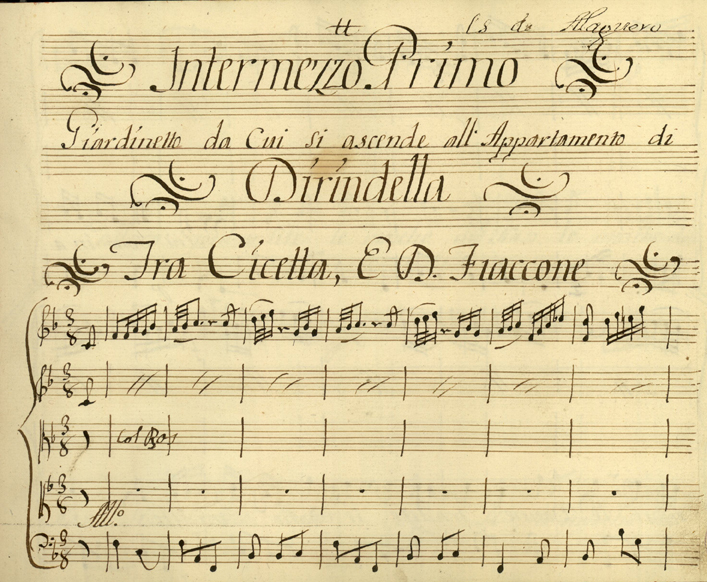 Intermezzo Primo
Giardinetto da Cui si ascende all'Appartamento di
Dirindella
Tra Cicetta, E D. Fiaccone
3 8
3 8
3 8 Col Bas
3 8
All.o
3 8